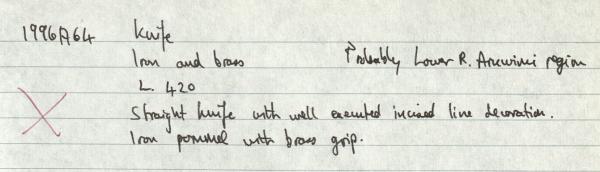 1996A64 Knife
Iron and brass Probably Lower R. Aruwimi region
L. 420
Straight knife with well executed incised line decoration.
Iron pommel with brass grip.